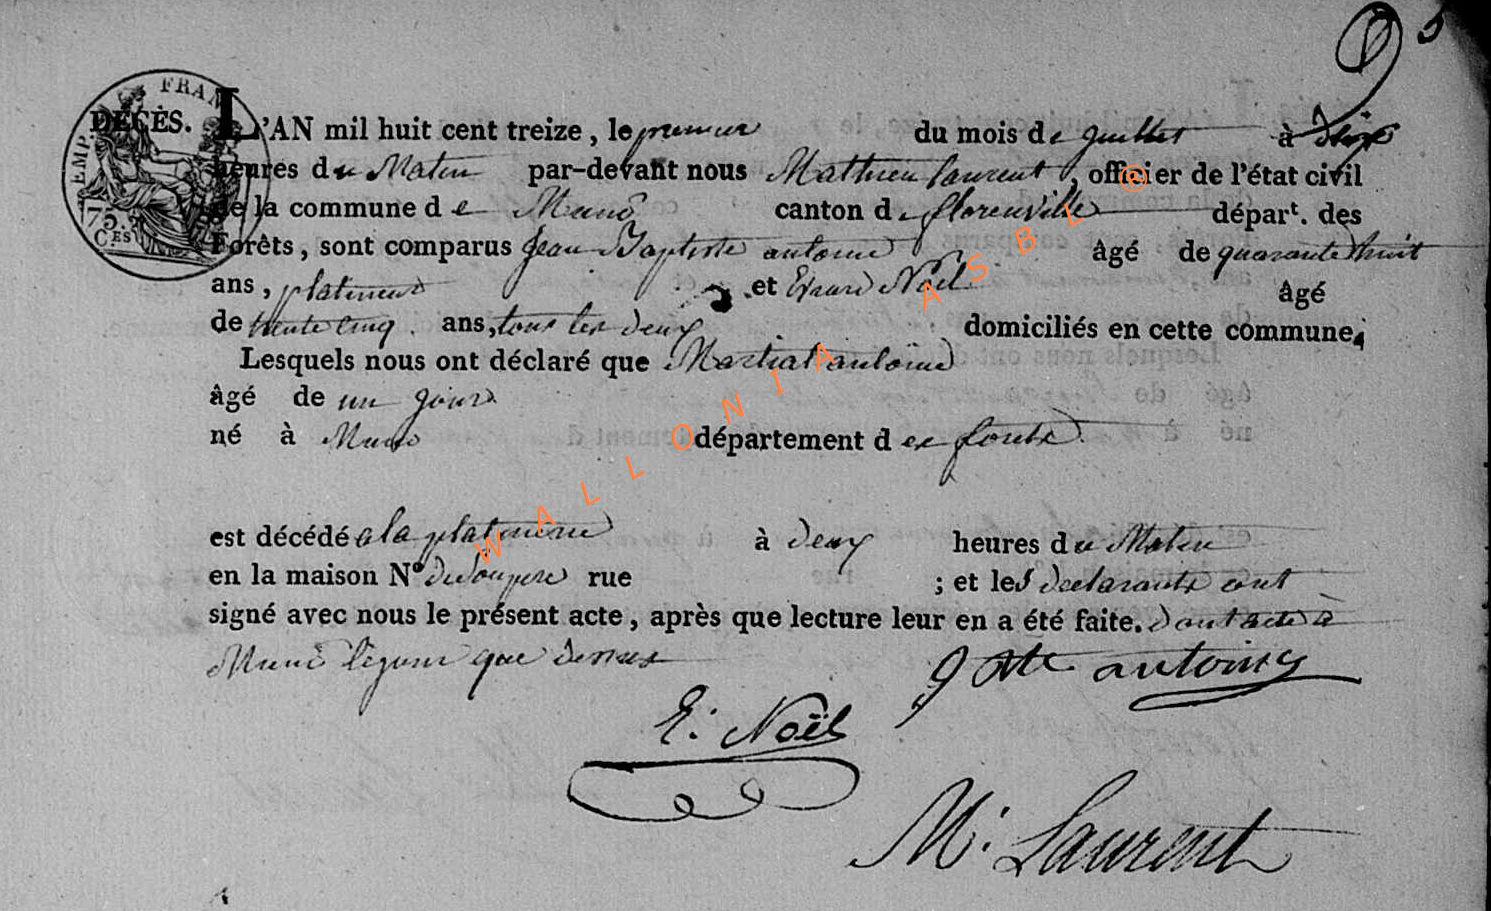 DÉCÈS. L'AN mil huit cent treize, le premier du mois de juillet à dix
heures du Matin par-devant nous Mathieu Laurent, officier de l'état civil
de la commune de Muno canton de florenville départ. des
Forêts, sont comparus Jean Baptiste antoine âgé de quarante huit
ans, platineur et Evrard Noël âgé
de trente cinq ans, tous les deux domiciliés en cette commune.
Lesquels nous ont déclaré que Martial antoine
âgé de un jour
né à Muno département des forets
est décédé a la platinerie à deux heures du Matin
en la maison N° de Son pere rue ; et les declarants ont
signé avec nous le présent acte, après que lecture leur en a été faite. dont acte à
Muno les jour que dessus
J Bte antoine
E. Noël
M. Laurent
EMP. FRAN
75. CES
WALLONIA ASBL ®